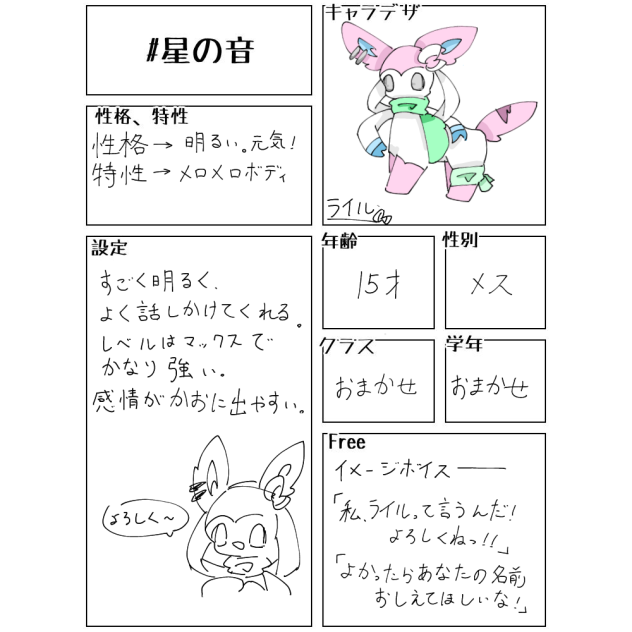 #星の音
キャラデザ
ライル
性格、特性
性格→明るい。元気!
特性→メロメロボディ
設定
すごく明るく、
よく話しかけてくれる。
レベルはマックスで
かなり強い。
感情がかおに出やすい。
よろしく〜
年齢
15才
性別
メス
クラス
おまかせ
学年
おまかせ
Free
イメージボイス――
「私、ライルって言うんだ!
よろしくねっ!!」
「よかったらあなたの名前
おしえてほしいな!」